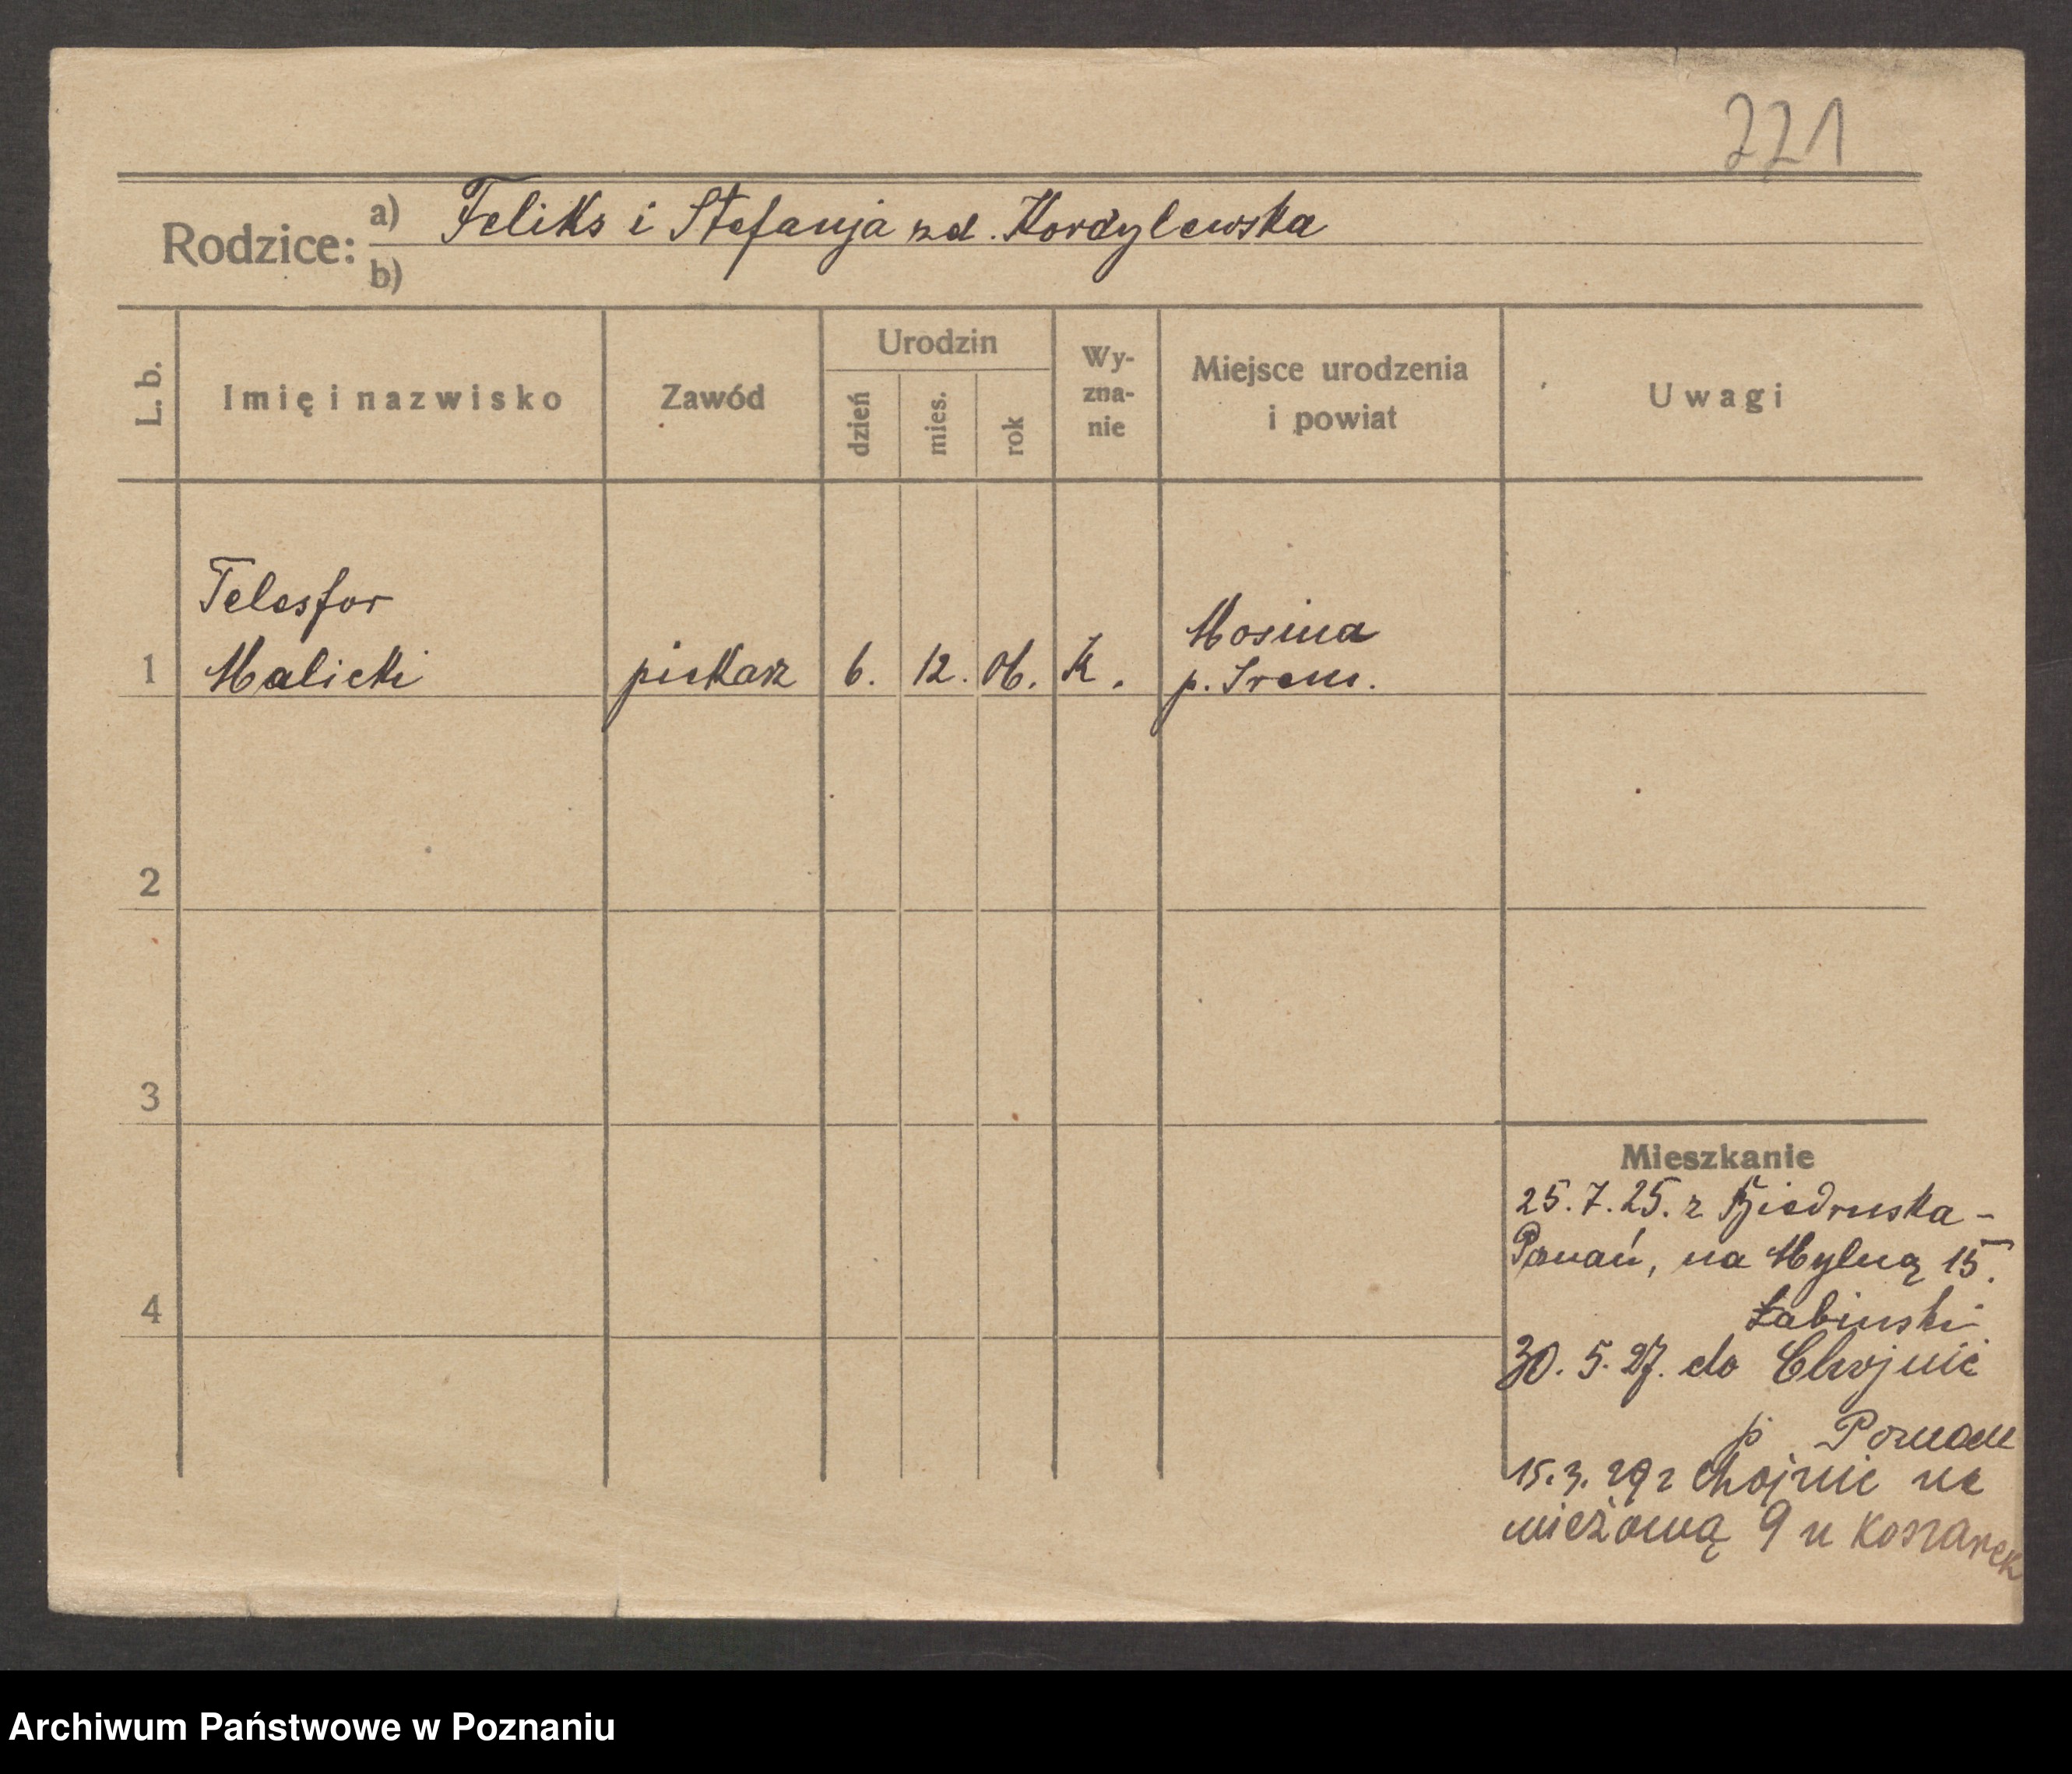 221
Rodzice: a) Feliks i Stefanja zd. Kordylewska
b)
L. b.
Imię i nazwisko
Zawód
Urodzin
dzień
mies.
rok
Wy-
zna-
nie
Miejsce urodzenia
i powiat
Uwagi
Telesfor
1 Malicki piekarz 6. 12. 06. K.
Mosina
p. Śrem.
2
3
4
Mieszkanie
25.7.25. z Biedruska -
Poznań, na Mylną 15.
Łabinski
30.5.27. do Chojnic
p Poznań
15.3.29 z Chojnic na
wieżową 9 u Koszarek
Archiwum Państwowe w Poznaniu